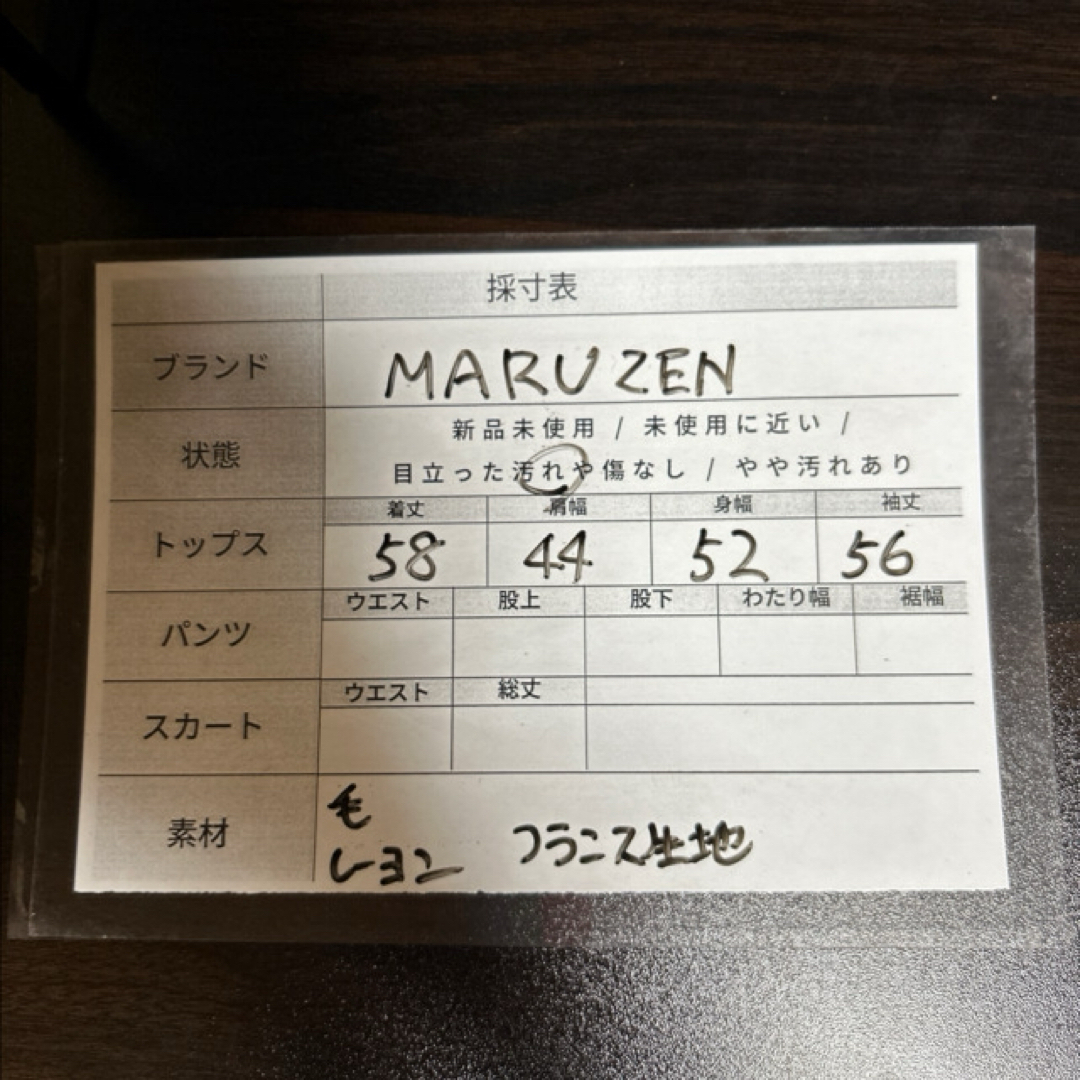 採寸表
ブランド MARUZEN
状態 新品未使用 / 未使用に近い /
目立った汚れや傷なし / やや汚れあり
着丈 肩幅 身幅 袖丈
トップス 58 44 52 56
ウエスト 股上 股下 わたり幅 裾幅
パンツ
ウエスト 総丈
スカート
素材 毛
レーヨン フランス生地